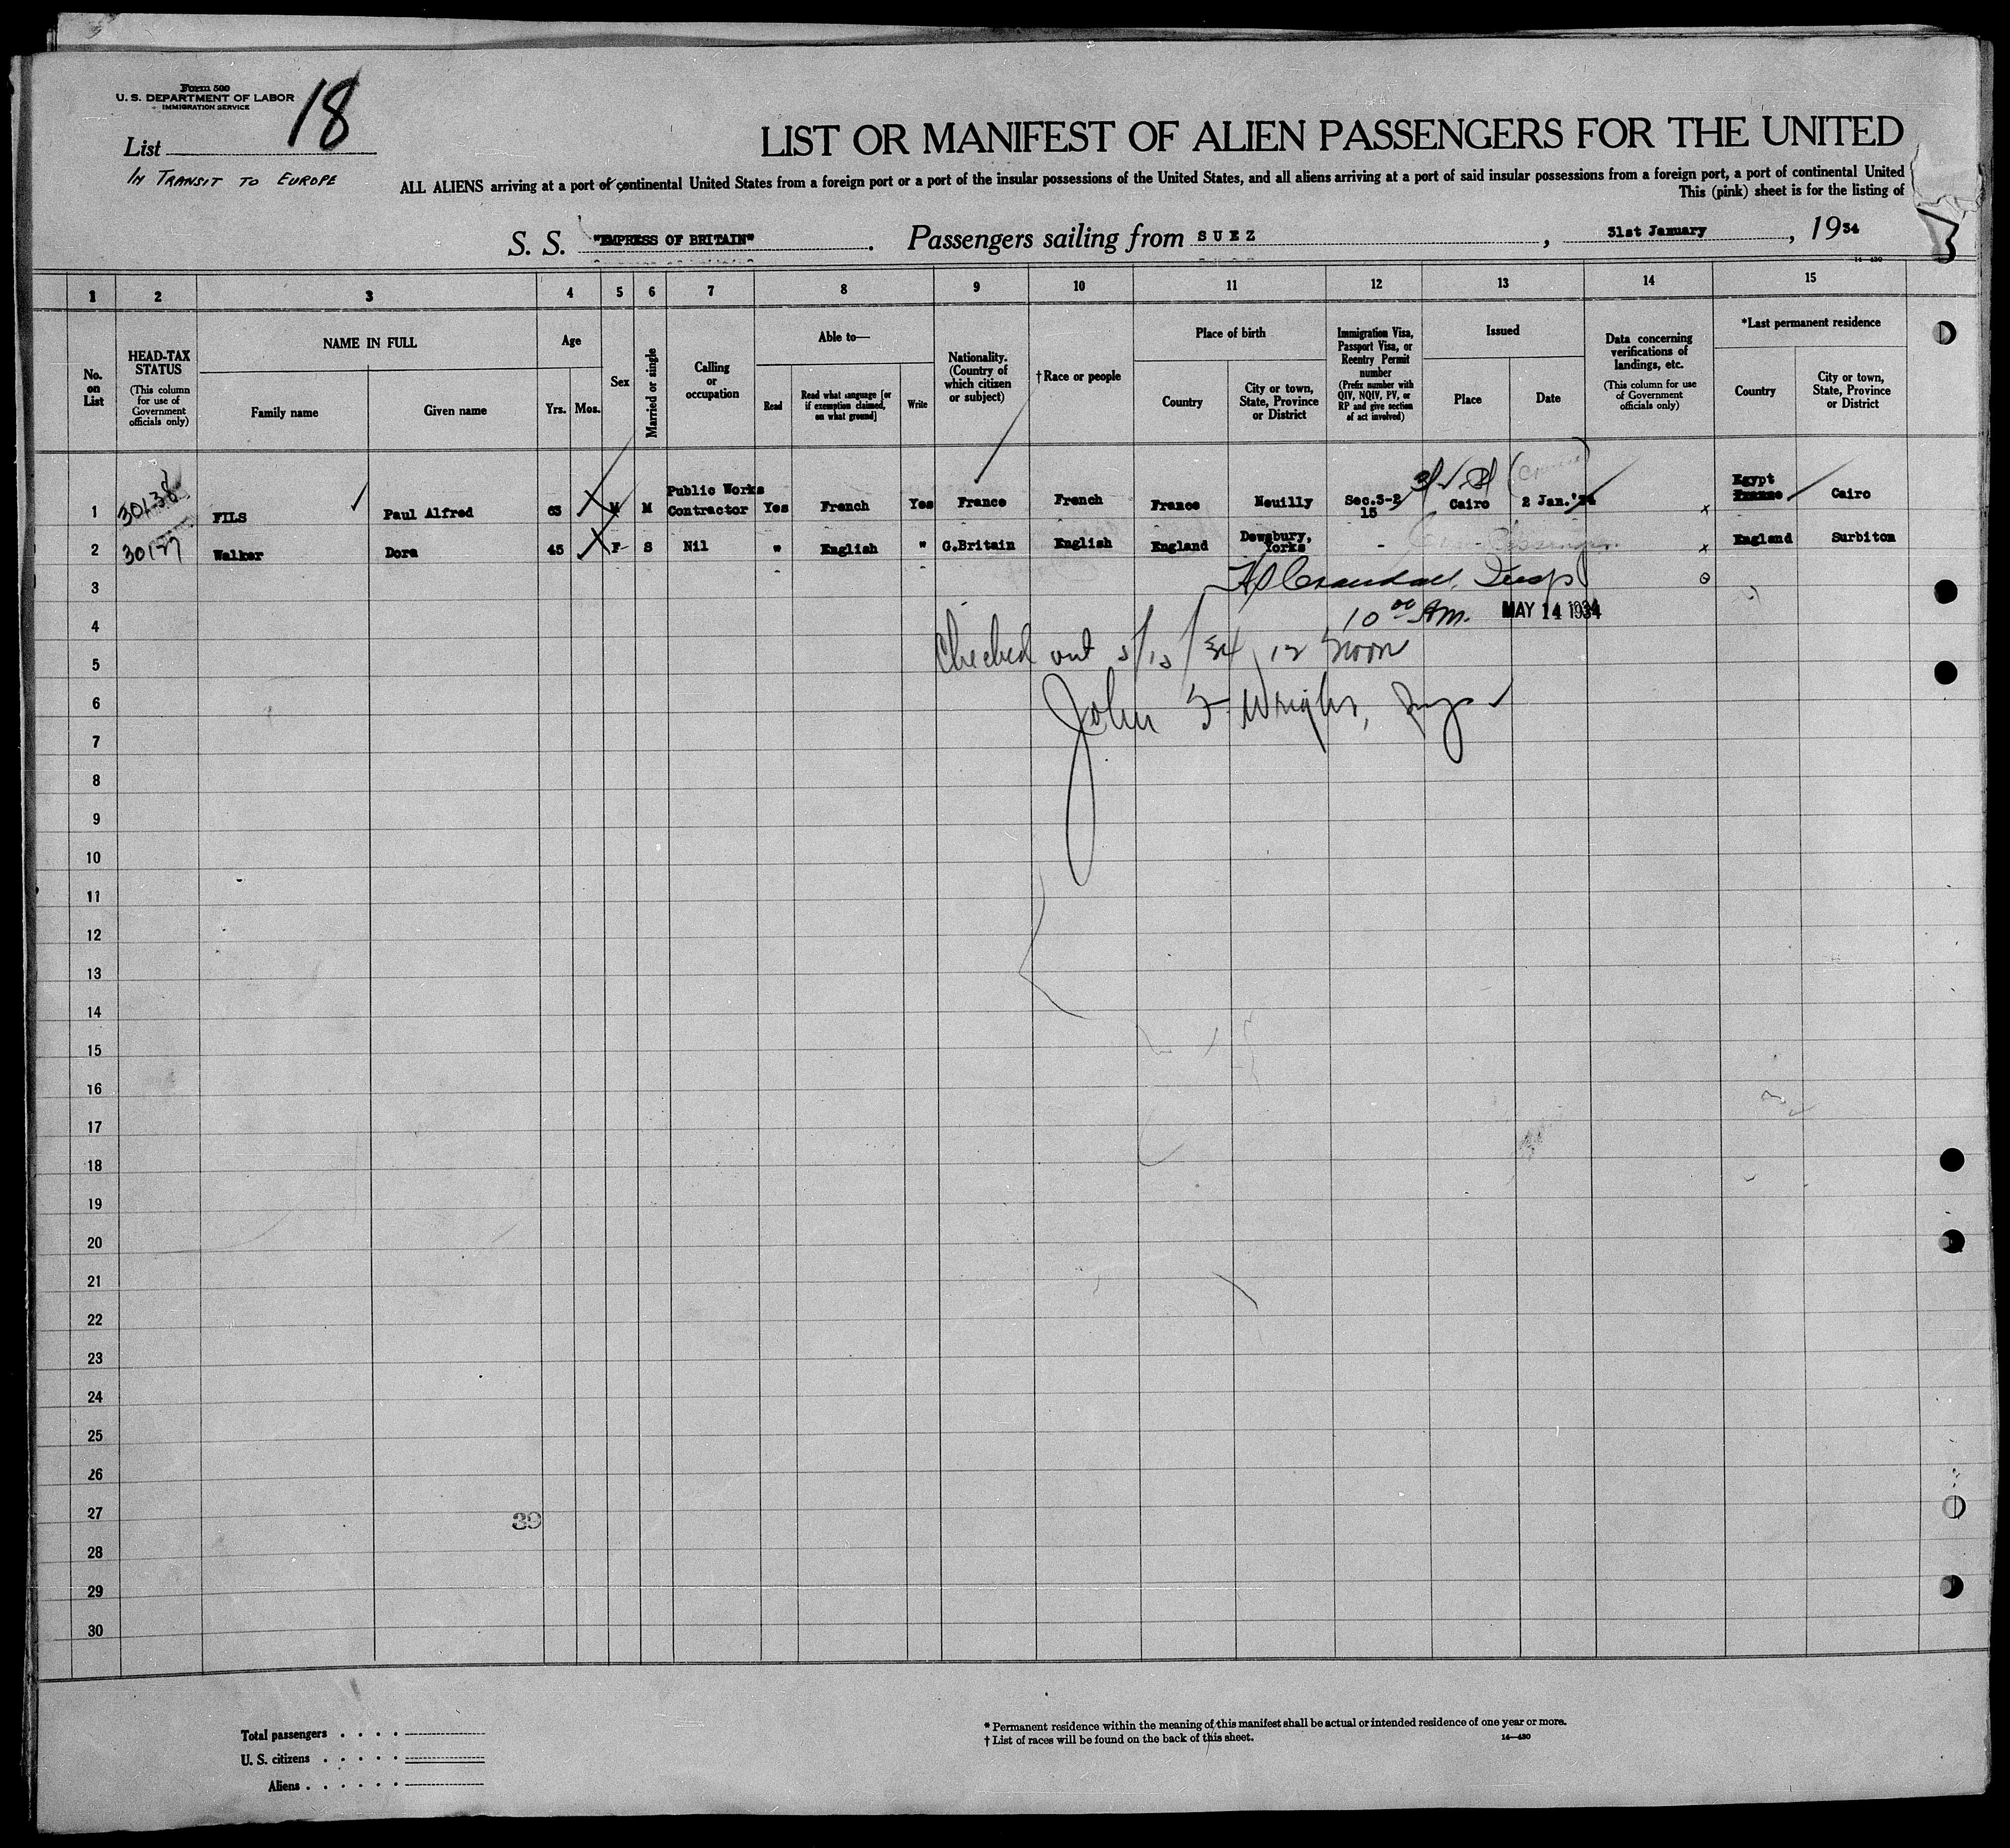 Form 500
U. S. DEPARTMENT OF LABOR
IMMIGRATION SERVICE
18
List
IN TRANSIT TO EUROPE
LIST OR MANIFEST OF ALIEN PASSENGERS FOR THE UNITED
ALL ALIENS arriving at a port of continental United States from a foreign port or a port of the insular possessions of the United States, and all aliens arriving at a port of said insular possessions from a foreign port, a port of continental United
This (pink) sheet is for the listing of
S. S. "EMPRESS OF BRITAIN". Passengers sailing from SUEZ, 31st January, 1934
14-430
1 2 3 4 5 6 7 8 9 10 11 12 13 14 15
No. on List
HEAD-TAX STATUS (This column for use of Government officials only)
NAME IN FULL
Family name Given name
Age
Yrs. Mos.
Sex
Married or single
Calling or occupation
Able to—
Read Read what language [or if exemption claimed, on what ground] Write
Nationality. (Country of which citizen or subject)
†Race or people
Place of birth
Country City or town, State, Province or District
Immigration Visa, Passport Visa, or Reentry Permit number (Prefix number with QIV, NQIV, PV, or RP and give section of act involved)
Issued
Place Date
Data concerning verifications of landings, etc. (This column for use of Government officials only)
*Last permanent residence
Country City or town, State, Province or District
1 30138 FILS Paul Alfred 63 M M Public Works Contractor Yes French Yes France French France Neuilly Sec.3-2 15 Cairo 2 Jan.'34 x Egypt France Cairo
2 Walker Dora 45 F S Nil " English " G.Britain English England Dewsbury, Yorks - x England Surbiton
3
10 00 AM. MAY 14 1934
4
Checked out 12 noon
5
John F. Wright,
6
7
8
9
10
11
12
13
14
15
16
17
18
19
20
21
22
23
24
25
26
27
39
28
29
30
Total passengers . . . .
U. S. citizens . . . . .
Aliens . . . . . .
* Permanent residence within the meaning of this manifest shall be actual or intended residence of one year or more.
† List of races will be found on the back of this sheet.
14—430